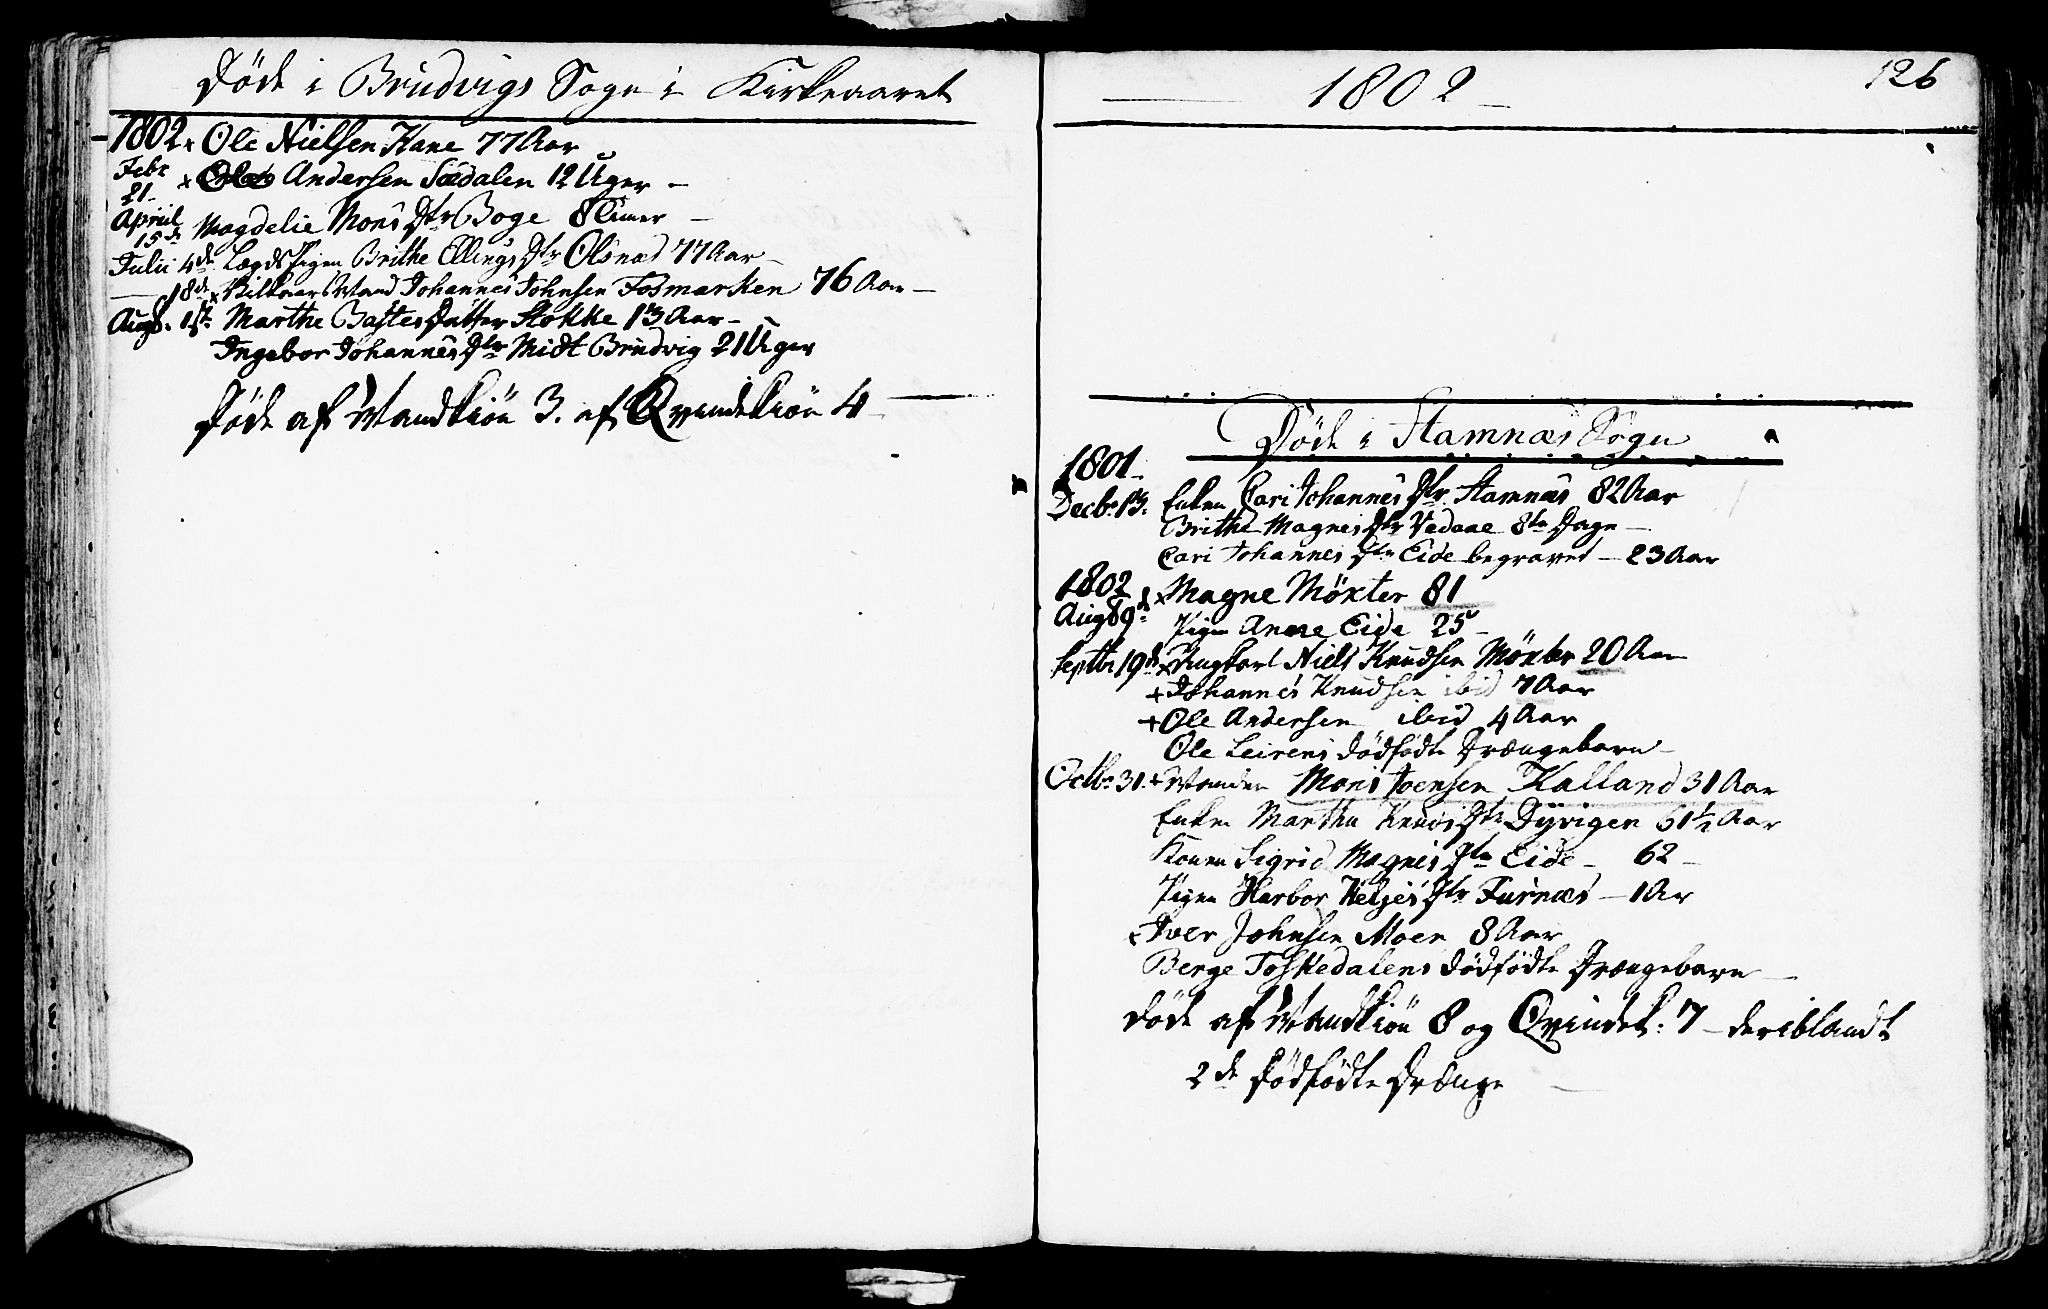 Døde i Brudvigs Sogn i Kirkeaaret
1802 x Ole Nielsen Kane 77 Aar
Febr 21 x Andersen Sædalen 12 Uger –
Apriil 15de Magdelie Mons Dtr Boge 8 Timer –
Julii 4de Lægds Pigen Brithe Ellings Dtr Olsnæs 77 Aar –
— 18de x Kilkaars Mand Johannes Johnsen Fosmarken 76 Aar –
Augs. 1st. Marthe Bastes Datter Stokke 13 Aar –
Ingebor Johannes Dtr Midt Brudvig 21 Uger
Døde af Mandkiøn 3. af Qvindekiøn 4
1802 –
126
Døde i Stamnæs Sogn
1801 –
Decbr 13. Enken Cari Johannes Dtr Stamnæs 82 Aar
Brithe Magnes Dtr Vedaae 8te Dage –
Cari Johannes Dtr Eide begravet – 23 Aar
1802 x Magne Möxter 81
Aug 89de Pigen Anne Eide 25 –
Septbr 19de x Ungkarl Niels Knudsen Möxter 20 Aar
+ Johannes Knudsen ibid 7 Aar
+ Ole Andersen ibid 4 Aar
Ole Leirens dödfödte Drængebarn –
Octbr 31. + Manden Mons Joensen Kalland 31 Aar
Enken Martha Knuds Dtr Dyvigen 61½ Aar
Konen Sigrid Magnes Dtr Eide – 62 –
Pigen Harbor Helges Dtr Furnæs – 1 Ar
x Iver Johnsen Moen 8 Aar
Berge Toskedalens dödfödte Drængebarn –
døde af Mandkiön 8 og Qvindek: 7 – deriblandt
2de dødfødte Drænge –